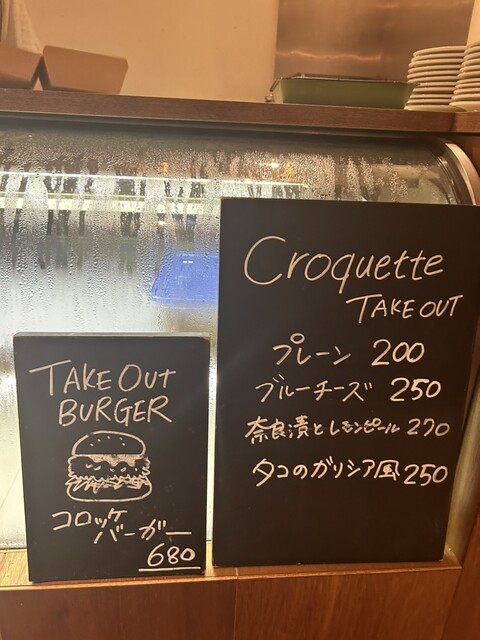 Croquette
TAKE OUT
プレーン 200
ブルーチーズ 250
奈良漬とレモンピール 270
タコのガリシア風 250
TAKE OUT
BURGER
コロッケ
バーガー
680